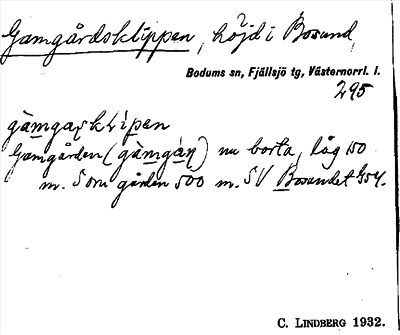 Gamgårdsklippen, höjd i Bosund,
Bodums sn, Fjällsjö tg, Västernorrl. l.
295
gàmgaʂklìpen
Gamgården (gàmgàɳ) nu borta, låg 150
m. S om gården 500 m. SV Bosundet
C. LINDBERG 1932.